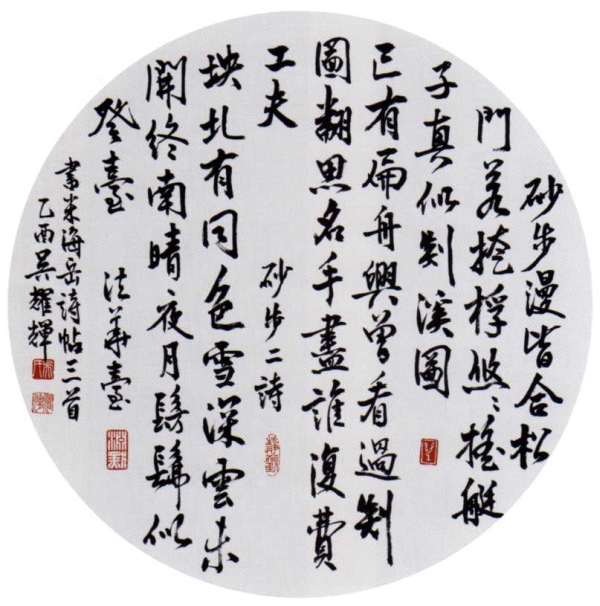 砂步漫皆合松
門若掩桴悠〻搖艇
子真似剡溪圖
已有扁舟興曾看過剡
圖翻思名手盡誰復費
工夫　砂步二詩
坱圠有同色雪深雲未
開終南晴夜月髣髴似
登臺　法華臺
書米海岳詩帖三首
乙酉吳耀輝